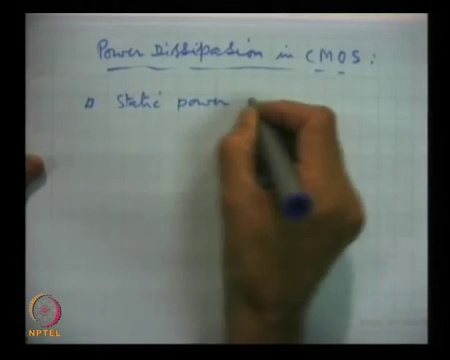 Power Dissipation in CMOS:
Static power
NPTEL